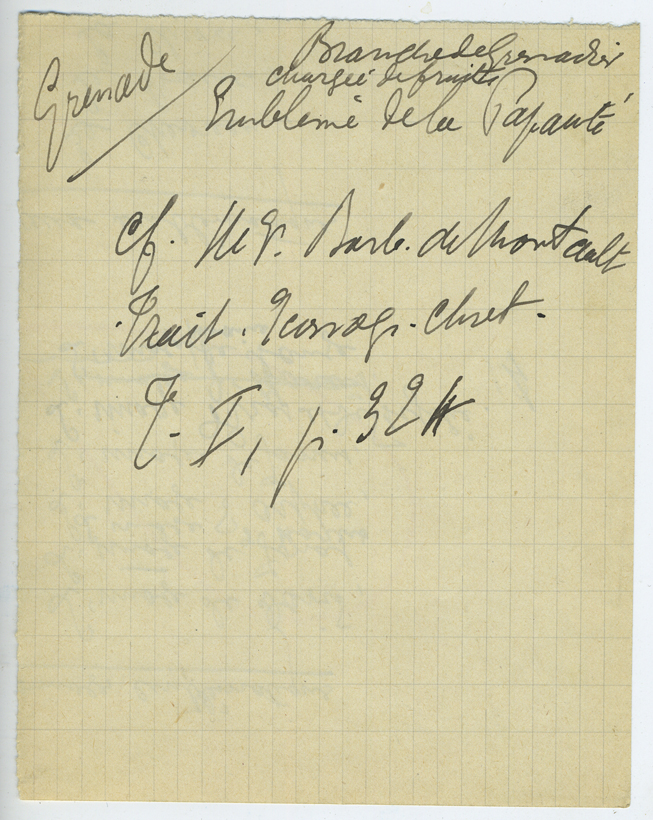 Grenade
Branche de Grenadier
chargée de fruits
Emblème de la Papauté
cf. Mgr. Barb. de Montault
Trait. Iconogr. Chret.
T. I, p. 324